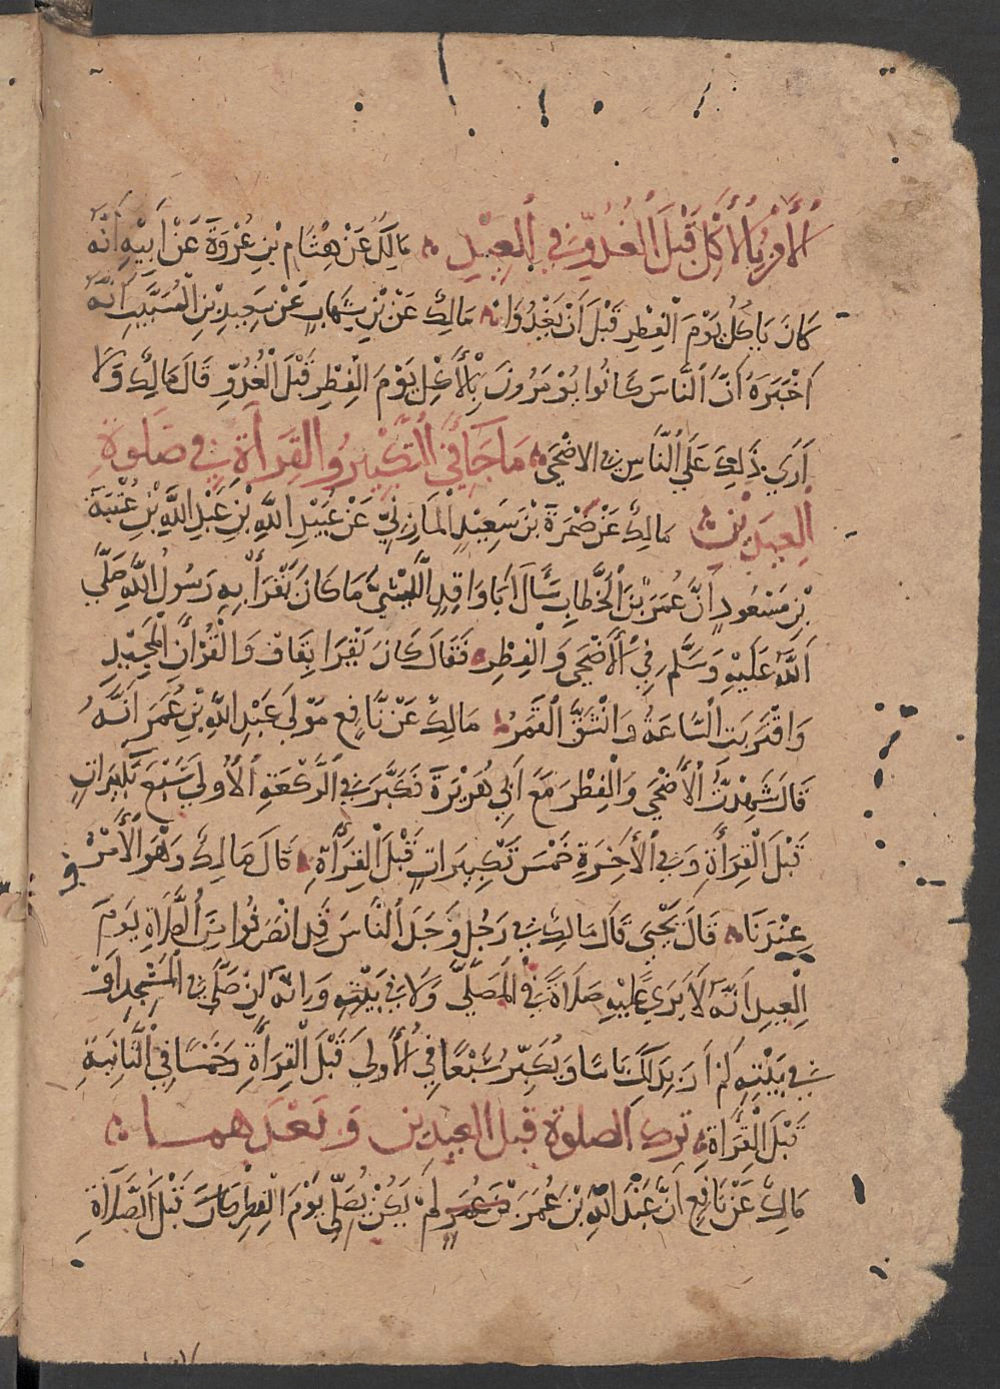 الْأَمْرُ بِالْأَكْلِ قَبْلَ الْغُدُوِّ فِي الْعِيدِ مَالِكٌ عَنْ هِشَامِ بْنِ عُرْوَةَ عَنْ أَبِيهِ أَنَّهُ
كَانَ يَاكُلُ يَوْمَ الْفِطْرِ قَبْلَ أَنْ يَغْدُوَا مَالِكٌ عَنْ بْنِ شِهَابٍ عَنْ سَعِيدِ بْنِ الْمُسَيَّبِ أَنَّهُ
أَخْبَرَهُ أَنَّ النَّاسَ كَانُوا يُومَرُونَ بِالْأَكْلِ يَوْمَ الْفِطْرِ قَبْلَ الْغُدُوِّ قَالَ مَالِكٌ وَلَا
أَرَي ذَلِكَ عَلَي النَّاسِ فِي الاضْحَي مَا جَاءَ فِي التَّكْبِيرِ وَالْقِرَأةِ فِي صَلَوةِ
الْعِيدَيْنِ مَالِكٌ عَنْ ضَمْرَةَ بْنِ سَعِيدٍ الْمَازِنِيِّ عَنْ عُبَيْدِ اللَّهِ بْنِ عَبْدِ اللَّهِ بْنِ عُتْبَةَ
بْنِ مَسْعُودٍ أَنَّ عُمَرَ بْنَ الْخَطَّابِ سَأَلَ أَبَا وَاقِدٍ اللَّيْثِيَّ مَا كَانَ يَقْرَأُ بِهِ رَسُولُ اللَّهِ صَلَّي
اللَّهُ عَلَيْهِ وَسَلَّمَ فِي الْأَضْحَي وَالْفِطْرِ فَقَالَ كَانَ يَقْرَا بِقَاف وَالْقُرْآنِ الْمَجِيدِ
وَاقْتَرَبَتِ السَّاعَةُ وَانْشَقَّ الْقَمَرُ مَالِكٌ عَنْ نَافِعٍ مَوْلَي عَبْدِ اللَّهِ بْنِ عُمَرَ أَنَّهُ
قَالَ شَهِدْتُّ الْأَضْحَي وَالْفِطْرَ مَعَ أَبِي هُرَيْرَةَ فَكَبَّرَ فِي الرَّكْعَةِ الْأُولَي سَبْعَ تَكْبِيرَاتٍ
قَبْلَ الْقِرَأةِ وَفِي الْأَخِرَةِ خَمْسَ تَكْبِيرَاتٍ قَبْلَ الْقِرَأةِ قَالَ مَالِكٌ وَهْوَ الْأَمْرُ
عِنْدَنَا قَالَ يَحْيَي قَالَ مَالِكٌ فِي رَجُلٍ وَجَدَ النَّاسَ قَدِ انْصَرَفُوا مِنَ الصَّلَاةِ يَوْمَ
الْعِيدِ أَنَّهُ لَا يَرَي عَلَيْهِ صَلَاةً فِي الْمُصَلَّي وَلَا فِي بَيْتِهِ وَانَّهُ لن صَلَّي فِي الْمَسْجِدِ أَوْ
فِي بَيْتِهِ لَمْ أَرَ بِذَلِكَ بَاسًا وَيُكَبِّرُ سَبْعًا فِي الْأُولَي قَبْلَ الْقِرَأةِ وَخَمْسًا فِي الثَّانِيَةِ
قَبْلَ الْقِرَأةِ ترك الصلوة قبل العيدين وبعدهما
مَالِكٌ عَنْ نَافِعٍ أَنَّ عَبْدَ اللَّهِ بْنَ عُمَرَ لَمْ يَكُنْ يُصَلِّي يَوْمَ الْفِطْرِ قَبْلَ الصَّلَاةِ